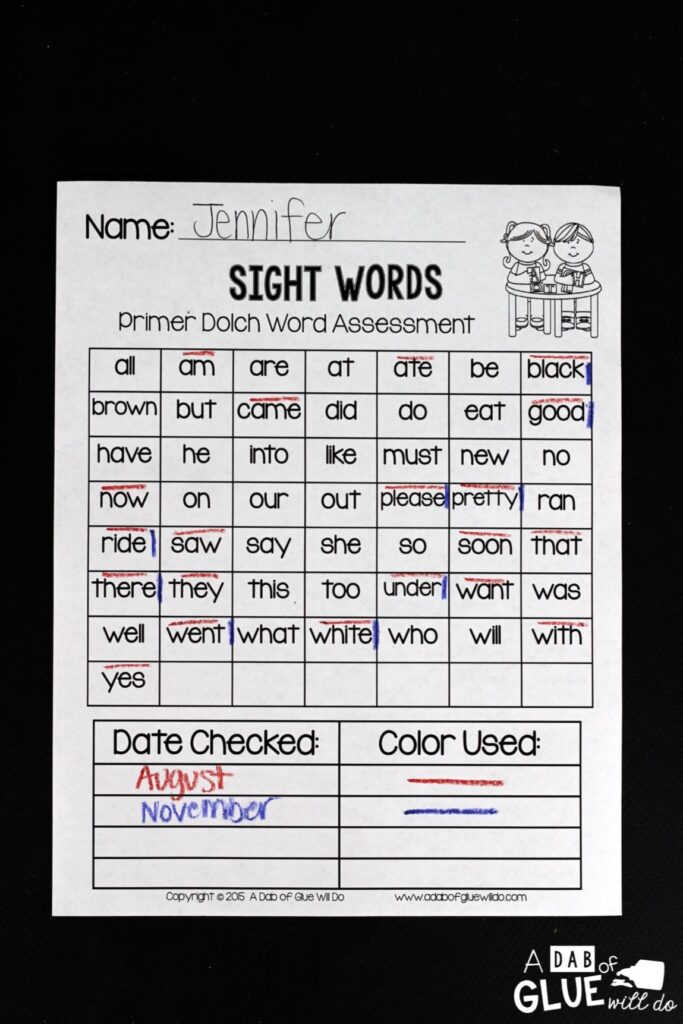 Name: Jennifer
SIGHT WORDS
Primer Dolch Word Assessment
all am are at ate be black
brown but came did do eat good
have he into like must new no
now on our out please pretty ran
ride saw say she so soon that
there they this too under want was
well went what white who will with
yes
Date Checked: Color Used:
August
November
Copyright © 2015 A Dab of Glue Will Do www.adabofgluewilldo.com
A DAB of
GLUE will do